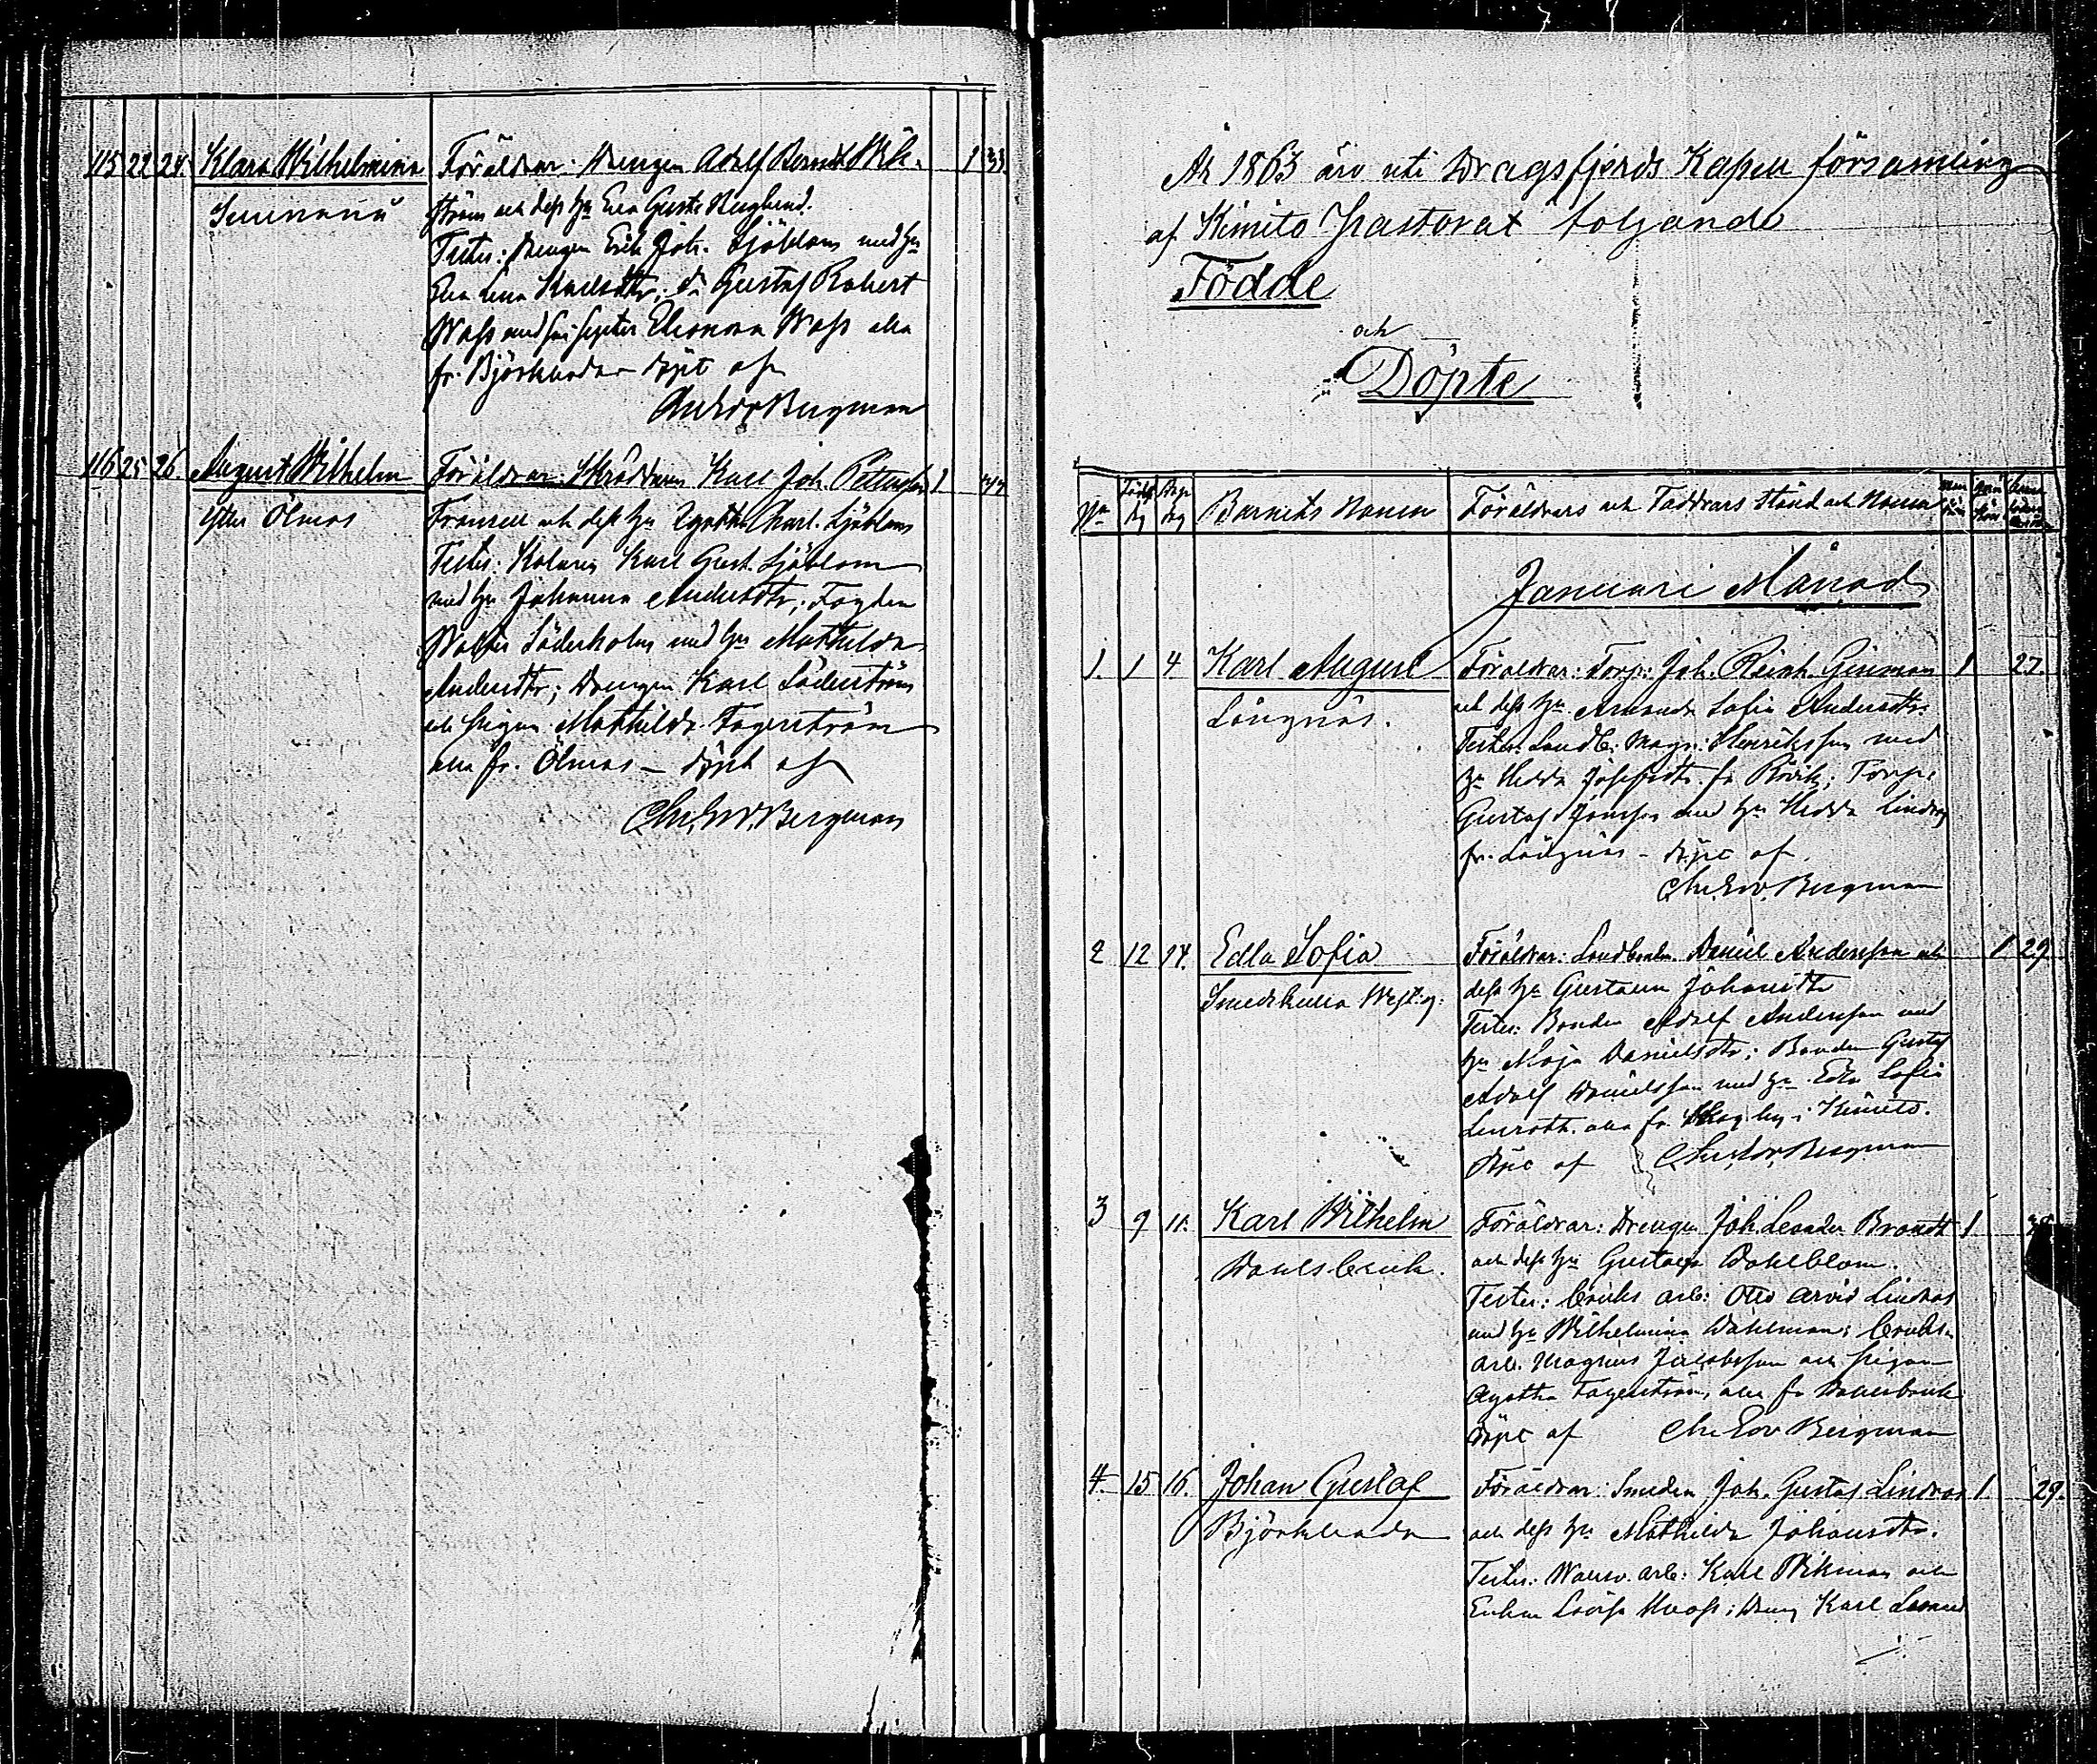 115 22 24. Klara Wilhelmina Föräldrar: Drengen Adolf Berndt Wik- 1 33.
ström och dess hu Eva Gusta Berglund.
Testes: Drengen Erik Joh. Sjöblom med hu
Eva Lena Karlsdtr; do Gustaf Robert
Wass med Eleonora Wass alla
fr. Björkboda döpt af
Chr Edv Bergman
116 25 26. August Wilhelm Föräldrar: Skräddaren Karl Joh. Pettersson 1
Ytter Ölmos Fransell och dess hu Agatha Charl. Sjöblom
Testes: Kolaren Karl Gust. Sjöblom
med hu Johanna Andersdtr; Fogden
Walter Söderholm med hu Mathilda
Andersdtr; Drengen Karl Söderström
och Pigan Mathilda Fagerström
alla fr. Ölmos – döpt af
Chr. Edv. Bergman
År 1863 äro uti Dragsfjerds Kapell församling
af Kimito Pastorat följande
Födde
och
Döpte
No Födelse dag Dop dag Barnets Namn Föräldrars och Faddrars Stånd och Namn
Januari Månad
1. 1 4 Karl August Föräldrar: Torp: Joh. Reinh. Genman 1 27.
Långnäs. och dess hu Amanda Sofia Andersdtr.
Testes: Landb: Magn: Henriksson med
hu Hedda Josefsdtr. fr Rövik; Torp:
Gustaf Jansson med hu Hedda Lindroos
fr. Långnäs – döpt af
Chr. Edv. Bergman
2 12 14. Edla Sofia Föräldrar: Landbonden Daniel Andersson och 1 29
Smedskulla Westg: dess hu Gustava Johansdtr
Testes: Bonden Adolf Andersson med
hu Maja Danielsdtr; Bonden Gustaf
Adolf Danielsson med hu Edla Sofia
Lenroth. alla fr. Skogby i Kimito.
döpt af Chr. Edv. Bergman
3 9 11. Karl Wilhelm Föräldrar: Drengen Joh. Leander Brandt 1
Dalsbruk. och dess hu Gustava Dahlblom.
Testes: Bruks arb: Otto Arvid Lindroos
med hu Wilhelmina Dahlman; Bruks-
arb. Magnus Jacobsson och Pigan
Agatha Fagerström, alla fr Dalsbruk
döpt af Chr Edv Bergman
4. 15 16. Johan Gustaf Föräldrar: Smeden Joh. Gustaf Lindroos 1 29.
Björkboda och dess hu Mathilda Johansdtr.
Testes: arb: Karl Wikman och
Enkan Lovisa Karl